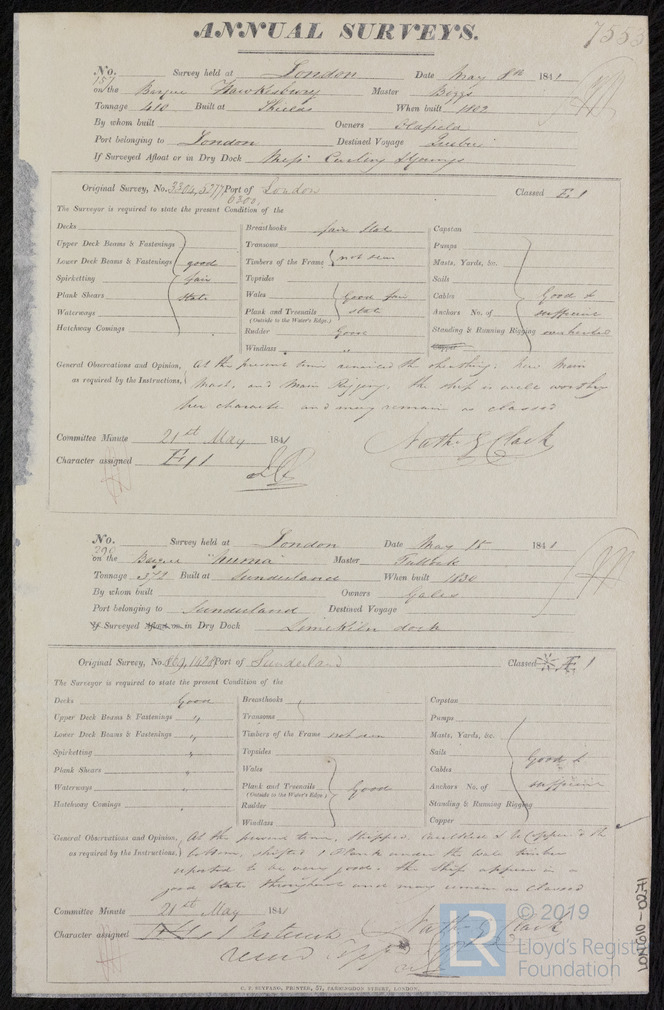 ANNUAL SURVEYS.
7553
No. 157 Survey held at London Date May 8th 1841
on the Barque Hawkesbury Master Beggs
Tonnage 410 Built at Shields When built 1802
By whom built Owners Oldfield
Port belonging to London Destined Voyage Quebec
If Surveyed Afloat or in Dry Dock Messrs Curling & Youngs
Original Survey, No. Port of London Classed E 1
6300
The Surveyor is required to state the present Condition of the
Decks Breasthooks fair state Capstan
Upper Deck Beams & Fastenings Transoms Pumps
Lower Deck Beams & Fastenings good Timbers of the Frame not seen Masts, Yards, &c.
Spirketting fair Topsides Sails
Plank Shears state Wales Good fair Cables Good &
Waterways Plank and Treenails state Anchors No. of sufficient
(Outside to the Water's Edge.)
Hatchway Comings Rudder Good Standing & Running Rigging
Windlass "
General Observations and Opinion, At the present time the sheathing. New Main
as required by the Instructions, Mast, and Main Rigging. the ship is well worthy
her character and may remain as classed
Committee Minute 21st May 1841 Nathl. G Clark
Character assigned E 1
No. 290 Survey held at London Date May 15 1841
on the Barque "Numa" Master
Tonnage 372 Built at Sunderland When built 1830
By whom built Owners Gales
Port belonging to Sunderland Destined Voyage
If Surveyed Afloat or in Dry Dock Limekiln dock
Original Survey, No. Port of Sunderland Classed Æ 1
The Surveyor is required to state the present Condition of the
Decks Good Breasthooks Capstan
Upper Deck Beams & Fastenings " Transoms Pumps
Lower Deck Beams & Fastenings " Timbers of the Frame not seen Masts, Yards, &c.
Spirketting " Topsides Sails Good &
Plank Shears " Wales Cables
Waterways " Plank and Treenails Good Anchors No. of sufficient
(Outside to the Water's Edge.)
Hatchway Comings " Rudder Standing & Running Rigging
Windlass Copper
General Observations and Opinion, At the present time, stripped, caulked & to Copper the
as required by the Instructions, bottom, shifted 1 Plank under the wale timber
reported to be very good. the ship appears in a
good State throughout and may remain as classed
Committee Minute 21st May 1841 Nathl. G Clark
Character assigned
C. F. SEYFANG, PRINTER, 57, FARRINGDON STREET, LONDON.
LON610-0274
LR
© 2019
Lloyd's Register
Foundation